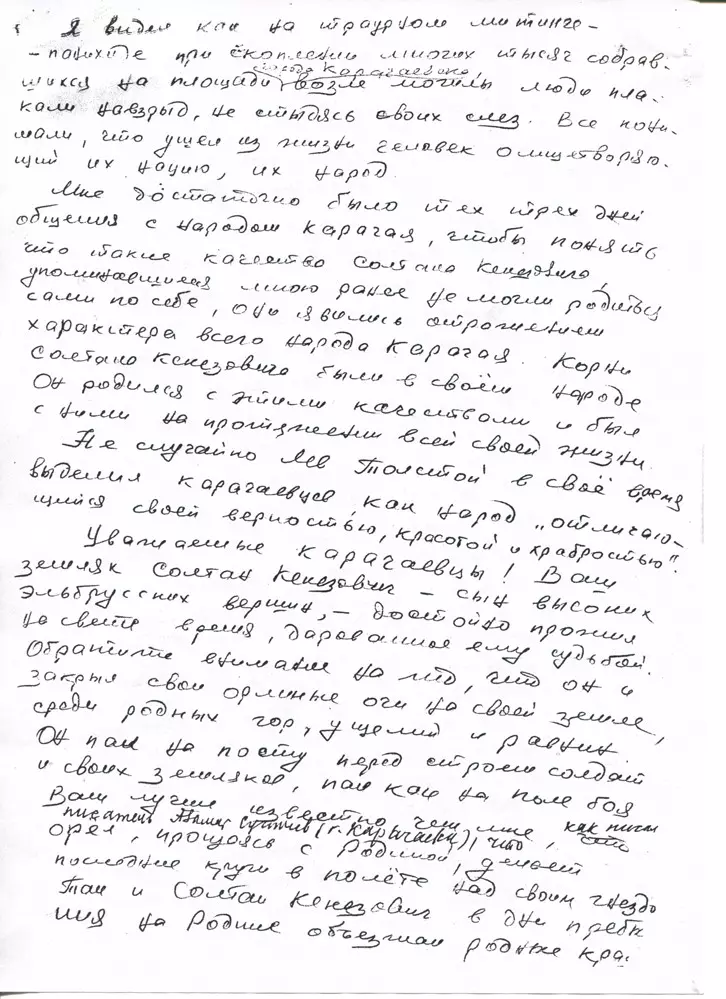 Я видел как на траурном митинге-
-панихиде при скоплении многих тысяч собрав-
шихся на площади возле могилы люди пла-
города Карачаевска,
кали навзрыд, не стыдясь своих слез. Все пони-
мали, что ушел из жизни человек олицетворяю-
щий их нацию, их народ.
Мне достаточно было тех трех дней
общения с народом Карачая, чтобы понять
что такие качества Солтана Кекезовича,
упоминавшиеся мною ранее не могли родиться
сами по себе, они явились отражением
характера всего народа Карачая. Корни
Солтана Кекезовича были в своём народе
Он родился с этими качествами и был
с ними на протяжении всей своей жизни.
Не случайно Лев Толстой в своё время
выделил карачаевцев, как народ „отличаю-
щийся своей верностью, красотой и храбростью".
Уважаемые карачаевцы! Ваш
земляк Солтан Кекезович – сын высоких
эльбрусских вершин, – достойно прожил
на свете время, дарованное ему судьбой.
Обратите внимание на то, что он и
закрыл свои орлиные очи на своей земле,
среди родных гор, ущелий и равнин.
Он пал на посту перед строем солдат
и своих земляков, пал как на поле боя
Вам лучше известно чем мне, как писал
писатель (г. Карачаевск), что
орел, прощаясь с Родиной, делает
последние круги в полёте над своим гнездо
Так и Солтан Кекезович в дни пребы
ния на Родине объезжал родные кра-